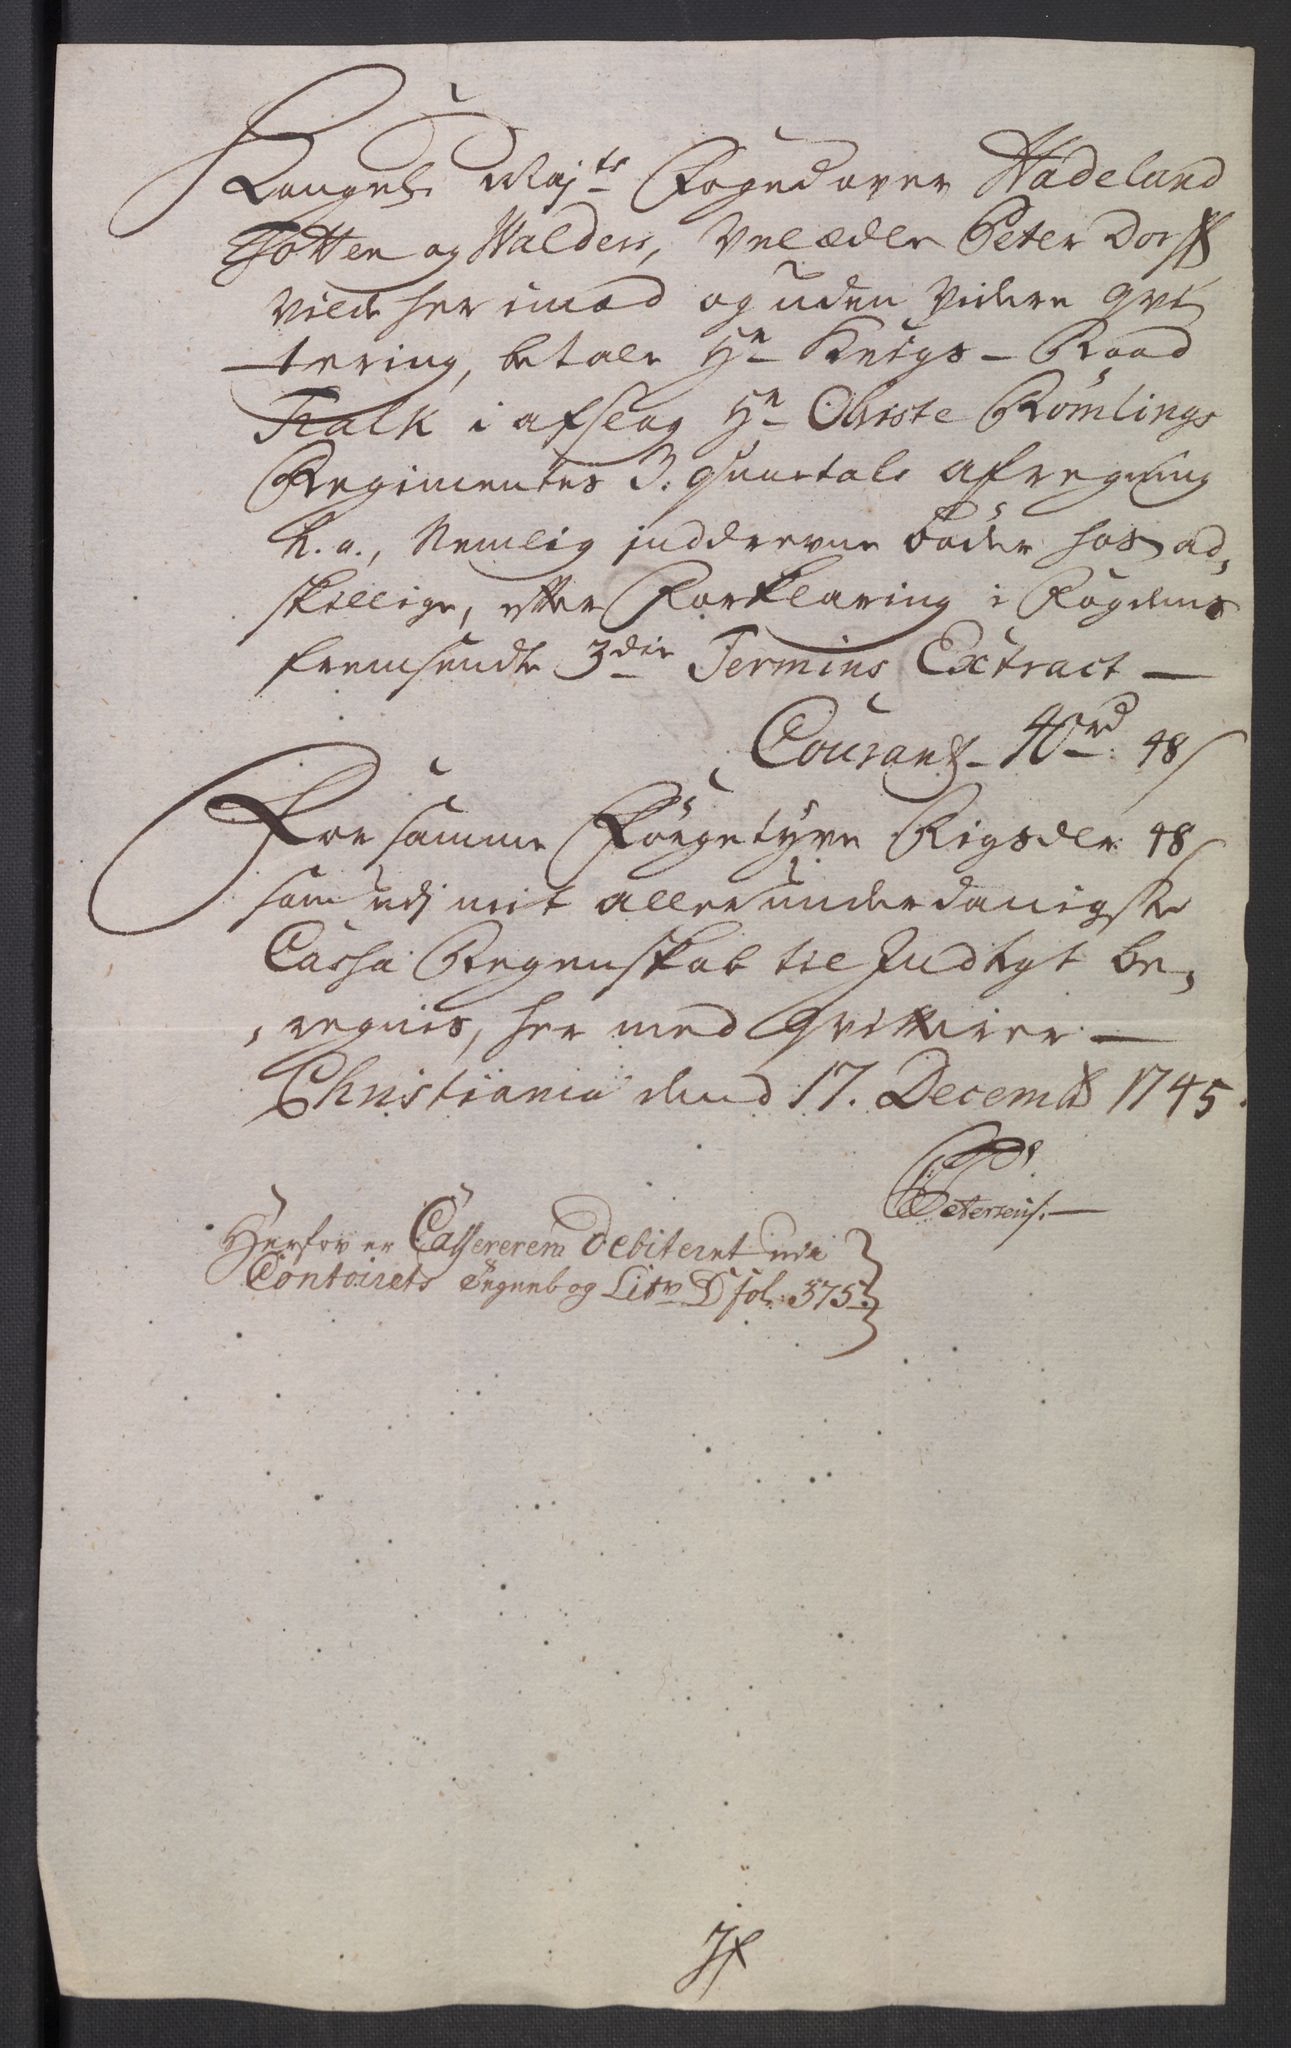 Kongel. Maj.ts Foged over Hadeland
Totten og Walders, Velædle Peter Dorff
Vilde her imod og uden Videre qvi
tering, betale Hr. Krigs-Raad
Tralk i afslag Hr. Obriste Römlings
Regimentes 3. Quartals afregning
h. a., Nemlig inddrevne bøder hos ad,
skillige, efter Forklaring i Fogdens
fremsendte 3die Termins Extract —
Courant – 40 rd: 48 s
For samme Förgetyve Rigsdlr. 48 s
som udj mit allerunderdanigste
Cassa Regenskab til Indtegt be,
,regnis, her med Qvitterer —
Christiania dend 17. Decemb 1745.
Petersens. —
Herfor er Cassererem Debiteret udi
Contoirets Tegneb og Litr D fol: 575.